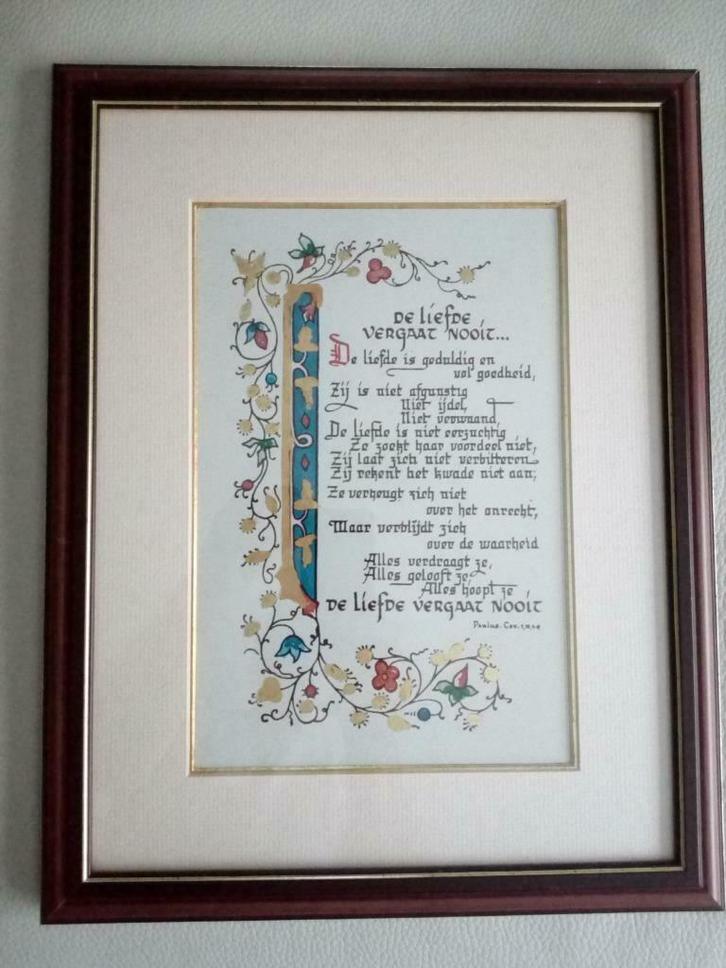 De liefde
vergaat nooit...
De liefde is geduldig en
vol goedheid,
Zij is niet afgunstig
Niet ijdel,
Niet verwaand,
De liefde is niet eerzuchtig
Ze zoekt haar voordeel niet,
Zij laat zich niet verbitteren
Zij rekent het kwade niet aan;
Ze verheugt zich niet
over het onrecht,
Maar verblijdt zich
over de waarheid
Alles verdraagt ze,
Alles gelooft ze,
Alles hoopt ze
De liefde vergaat nooit
Paulus. Cor.